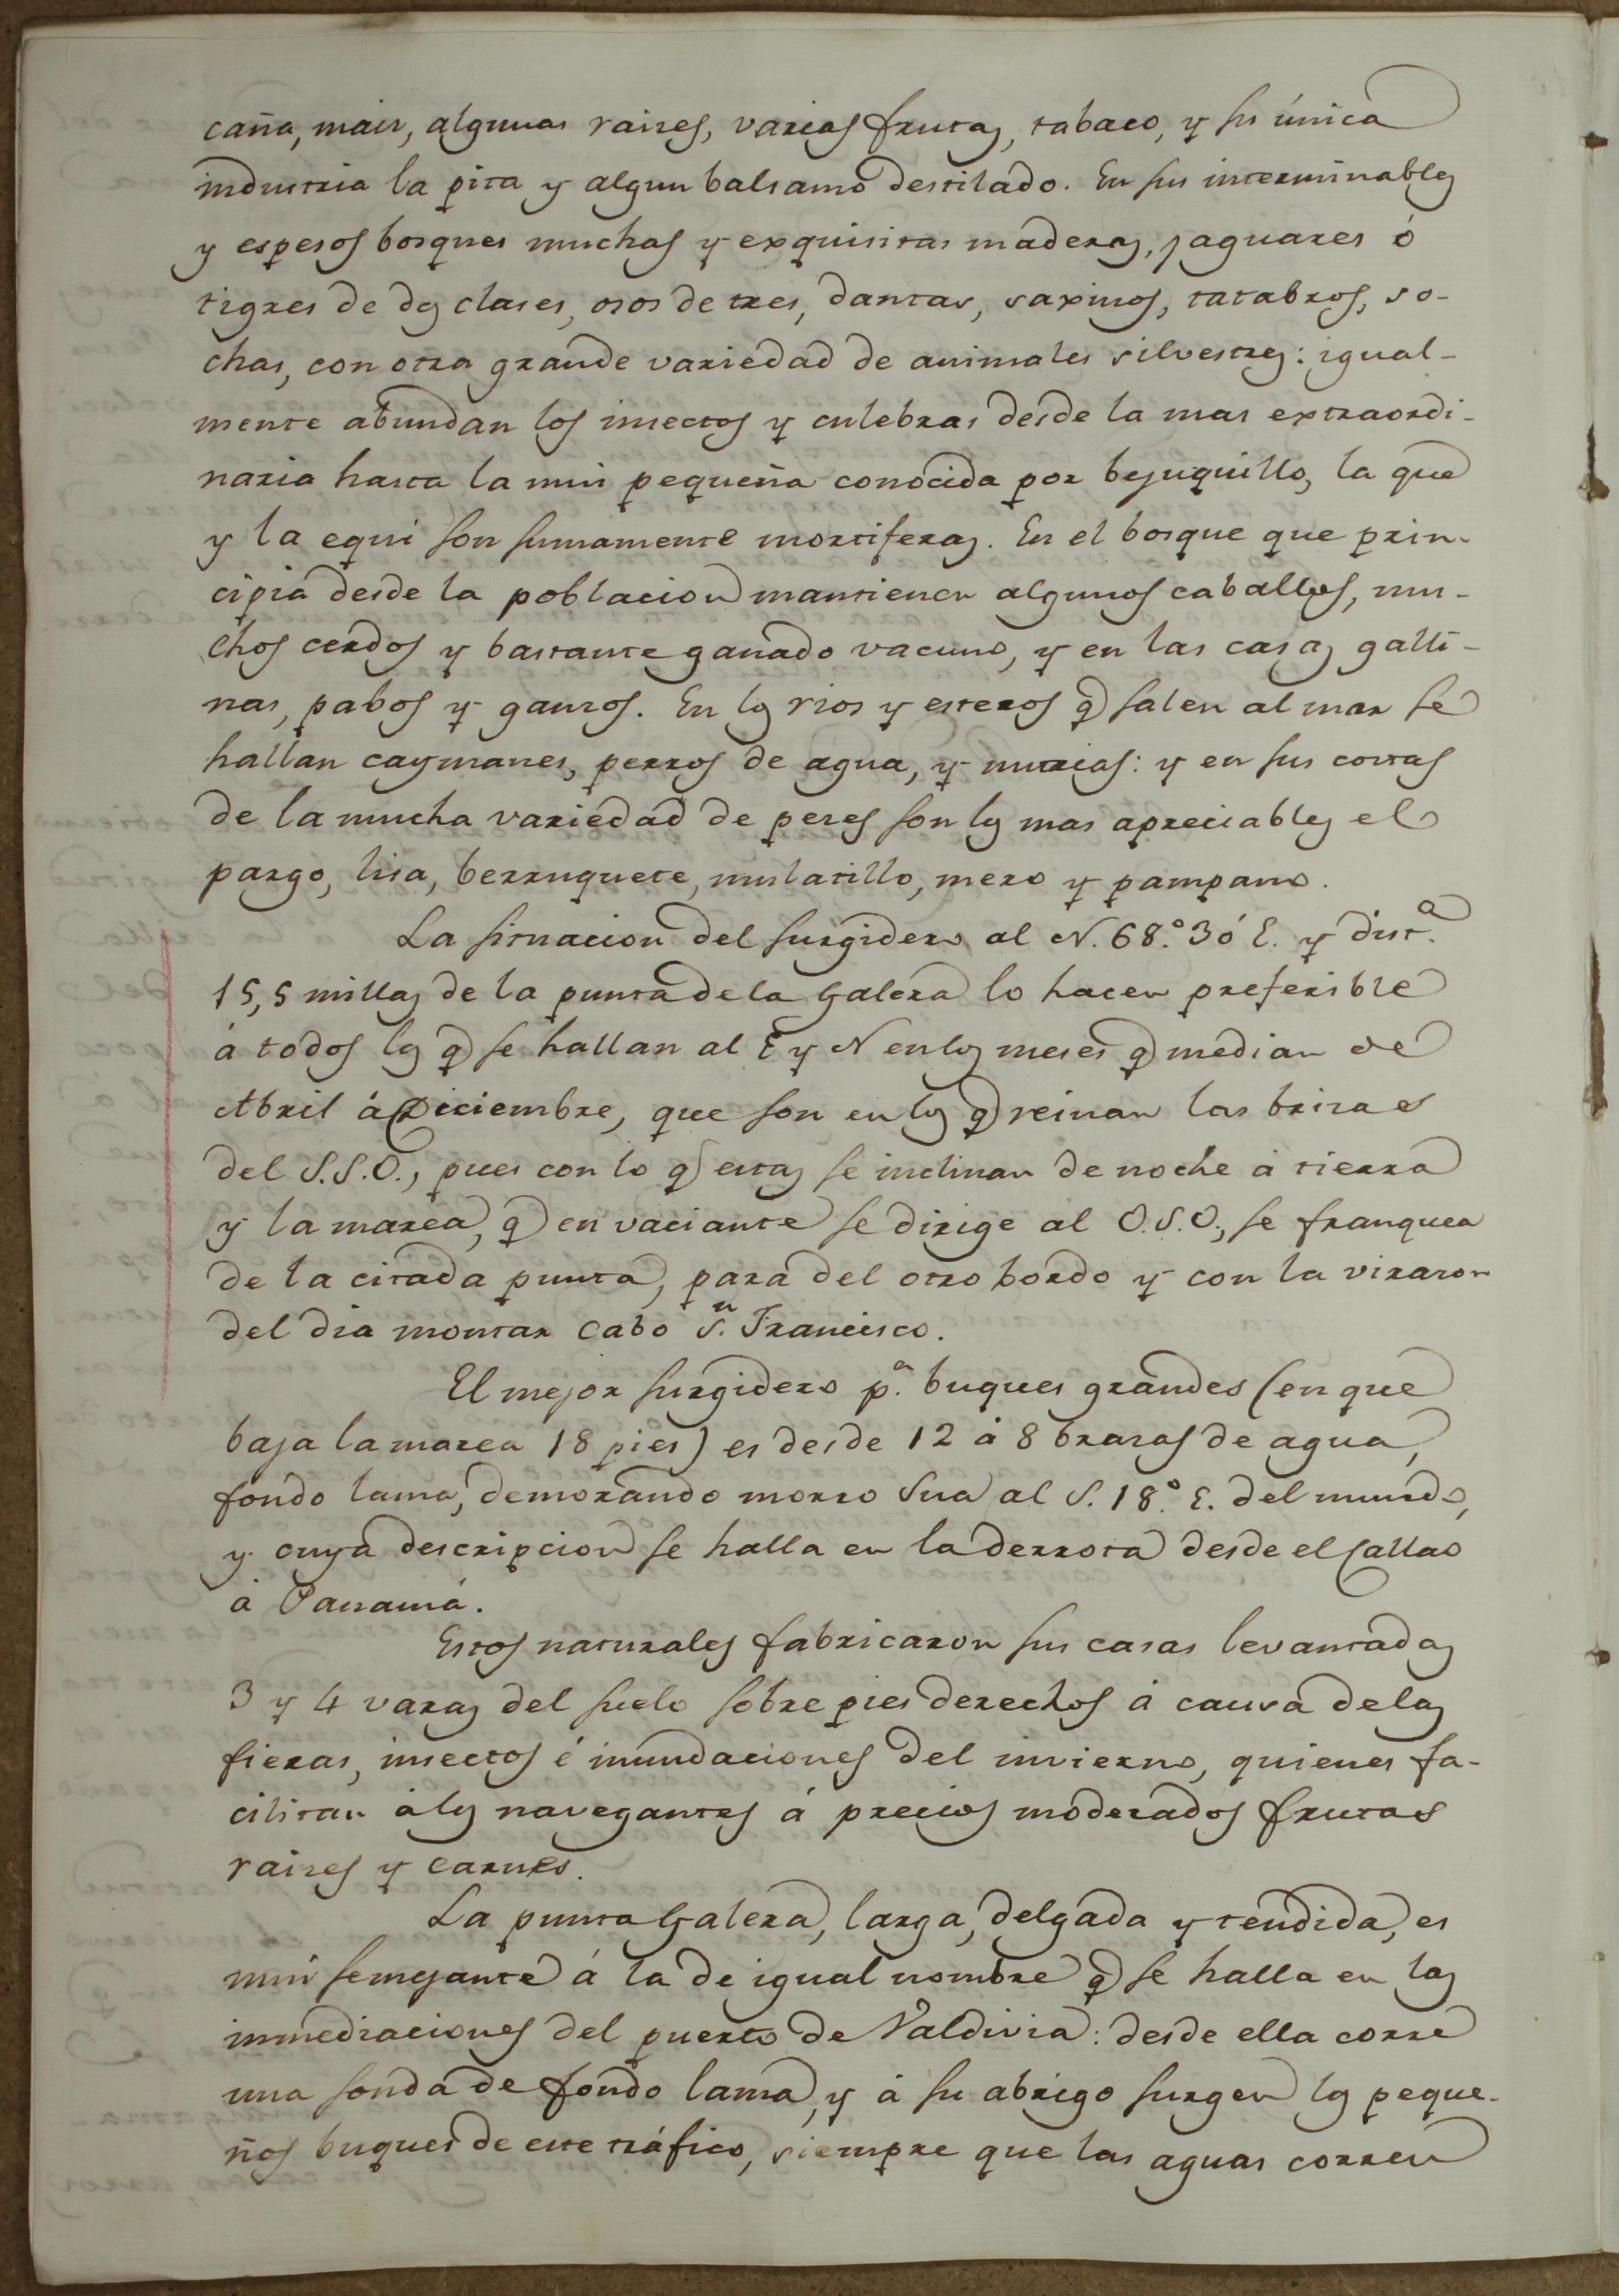 caña, mais, algunas raises, varias frutas, tabaco, y su única
industria la pita y algun balsamo destilado. En sus interminables
y espesos bosques muchas y exquisitas maderas, jaguares ó
tigres de dos clases, osos de tres, dantas, saxinos, tatabros, so-
chas, con otra grande variedad de animales silvestres: igual-
mente abundan los insectos y culebras desde la mas extraordi-
naria hasta la mui pequeña conocida por bejuquillo, la que
y la equi son sumamente mortiferas. En el bosque que prin-
cipia desde la poblacion mantienen algunos caballos, mu-
chos cerdos y bastante ganado vacuno, y en las casas galli-
nas, pabos y gansos. En los rios y esteros q salen al mar se
hallan caymanes, perros de agua, y nutrias: y en sus costas
de la mucha variedad de peses son los mas apreciables el
pargo, lisa, berruguete, mulatillo, mero y pampano.
La situacion del surgidero al N. 68.° 30' E. y dist.a
15,5 millas de la punta de la Galera lo hacen preferible
á todos los q se hallan al E y N en los meses q median de
Abril á Diciembre, que son en los q reinan las brisas
del S.S.O., pues con lo q estas se inclinan de noche á tierra
y la marea, q en vaciante se dirige al O.S.O., se franquea
de la citada punta, para del otro bordo y con la virason
del dia montar cabo S.n Francisco.
El mejor surgidero p.a buques grandes (en que
baja la marea 18 pies) es desde 12 á 8 brasas de agua,
fondo lama, demorando morro Sua al S. 18.° E. del mundo,
y cuya descripcion se halla en la derrota desde el Callao
á Panamá.
Estos naturales fabricaron sus casas levantadas
3 y 4 varas del suelo sobre pies derechos á causa de las
fieras, insectos é inundaciones del invierno, quienes fa-
cilitan á los navegantes á precios moderados frutas
raises y carnes.
La punta Galera, larga, delgada y tendida, es
mui semejante á la de igual nombre q se halla en las
inmediaciones del puerto de Valdivia: desde ella corre
una sonda de fondo lama, y á su abrigo surgen los peque-
ños buques de este tráfico, siempre que las aguas corren